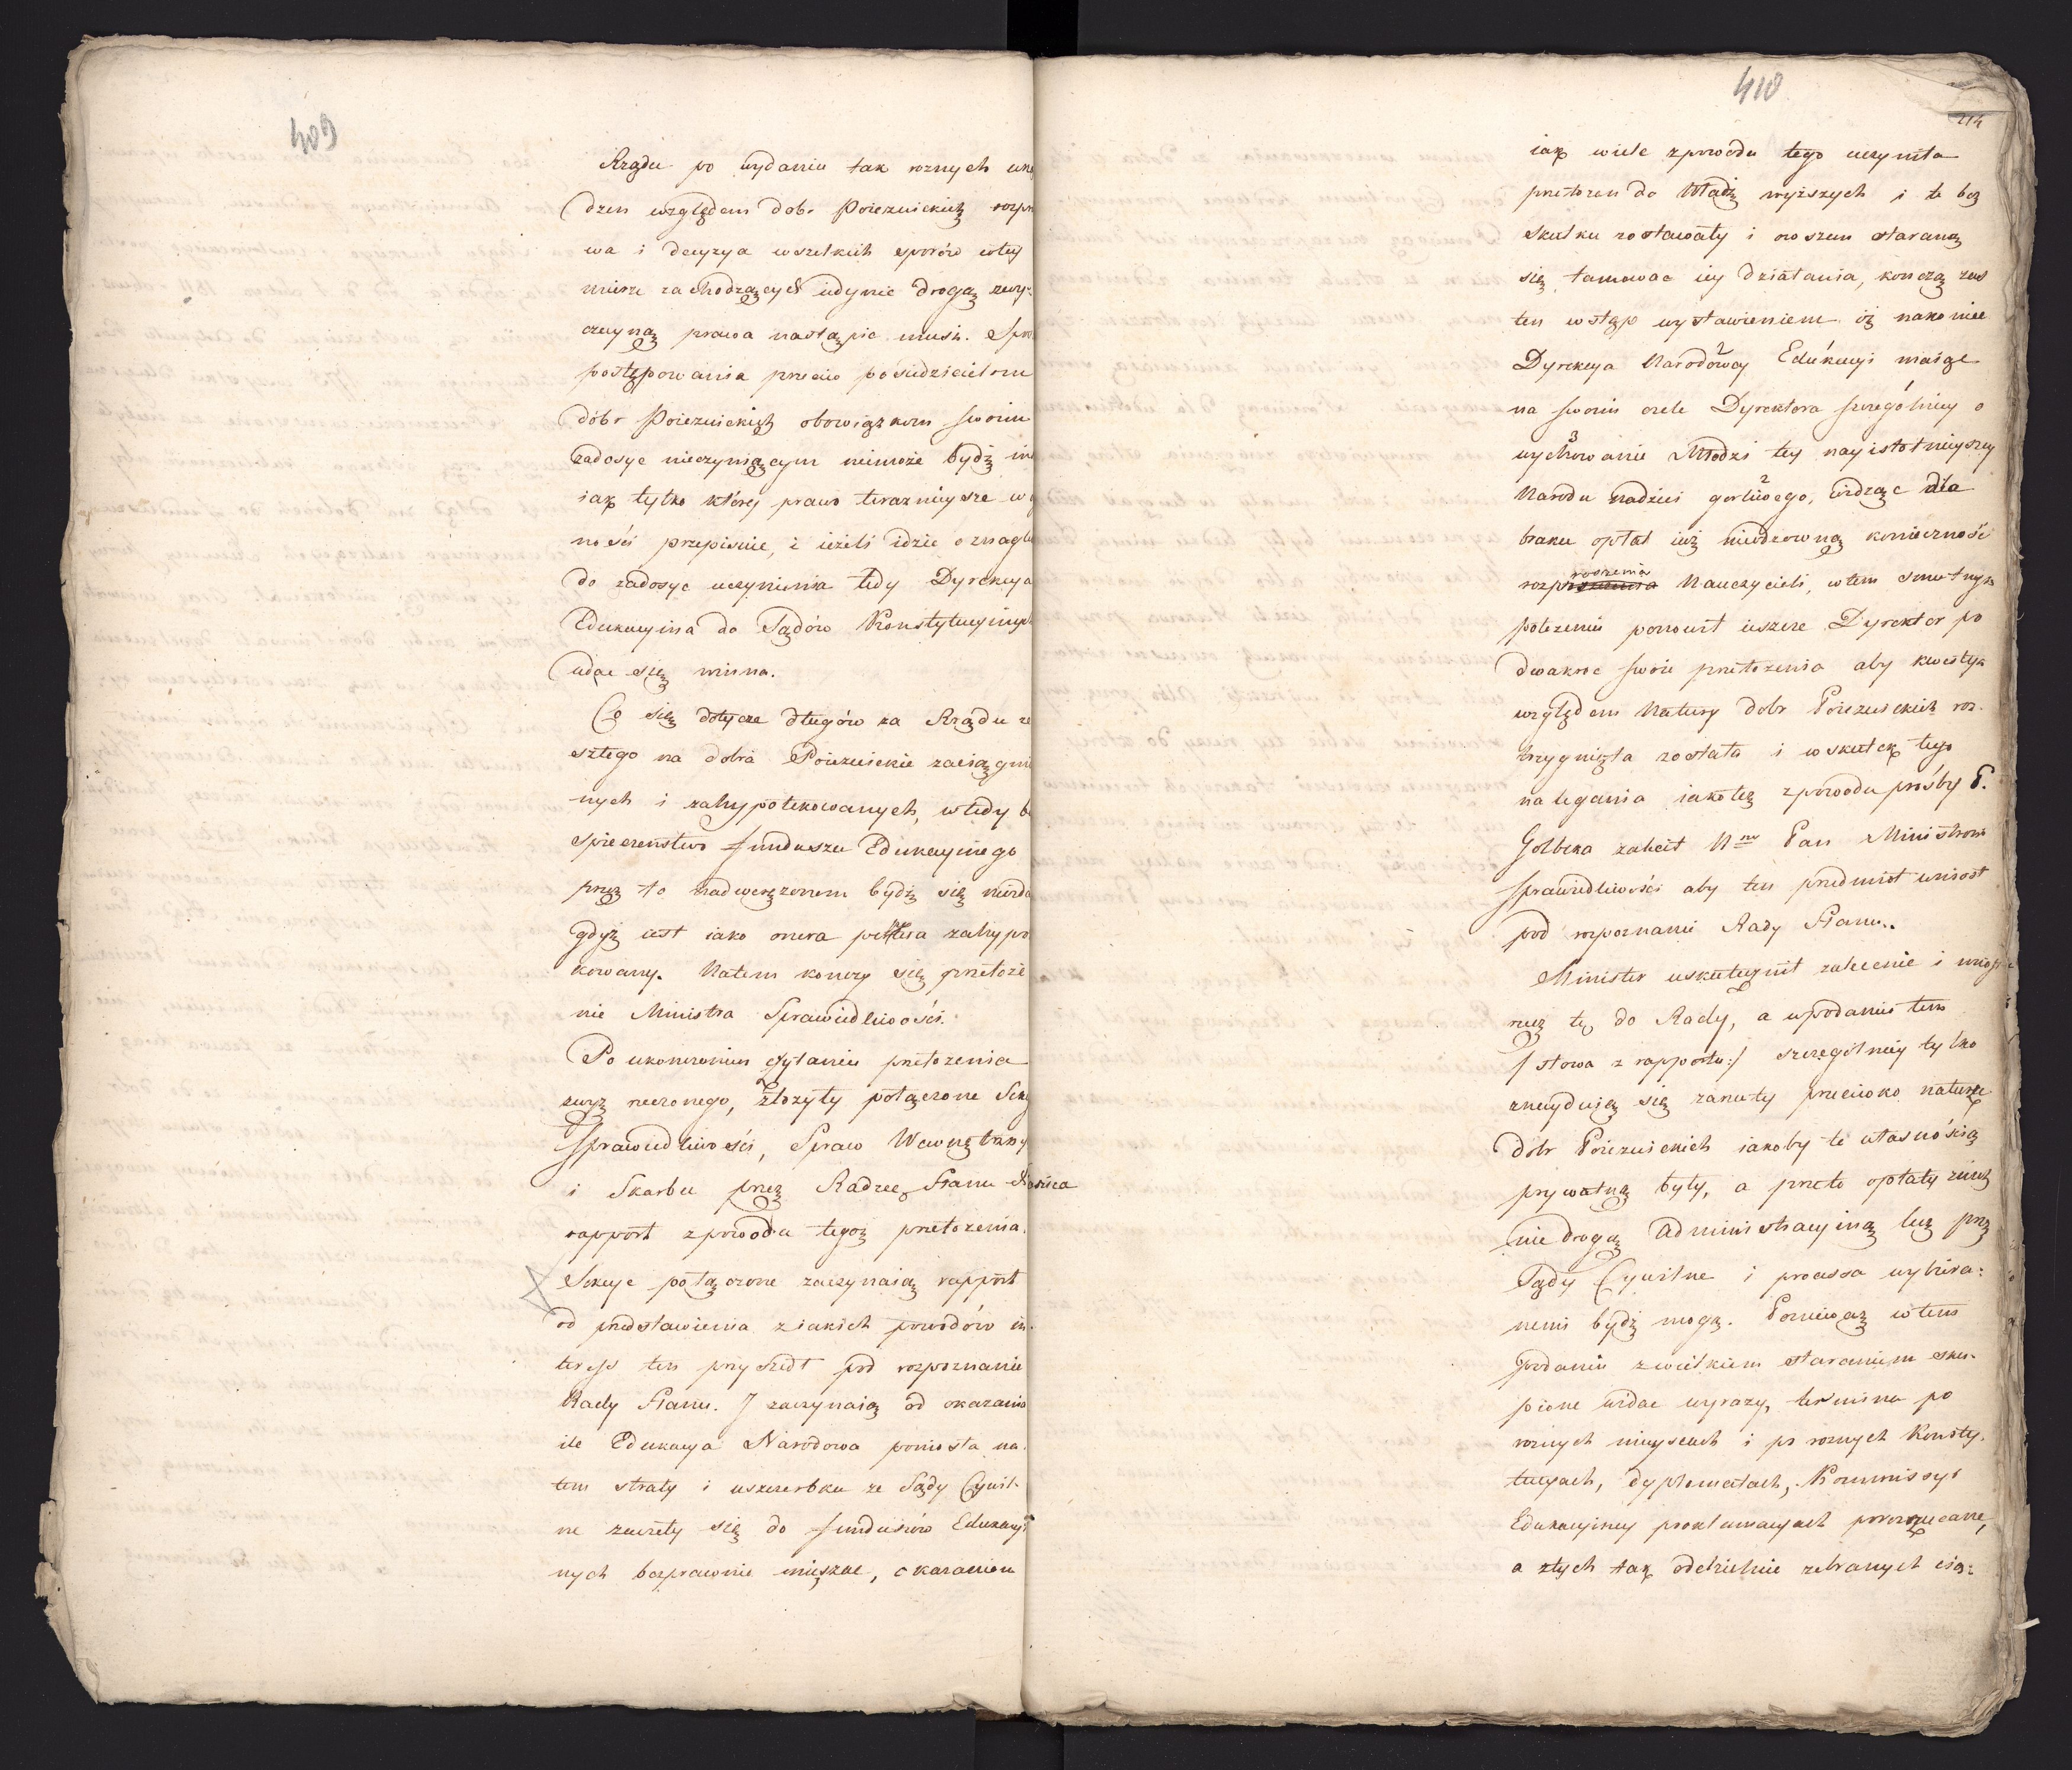 409
Rządu po wydaniu tak roznych urzą
dzen względem dobr Poiezuickich rozpra
wa i decyzya wszelkich sporów wtey
mierze zachodzących iedynie drogą zwy-
czayną prawa nastąpic musi. Spos
postępowania przeciw posiedzicielom
dóbr Poiezuickich obowiązkom swoim
zadosyc nieczyniącym niemoże bydź in
iak tylko który prawo teraznieysze w
ności przepisuie, i ieżeli idzie o znagle
do zadosyc uczynienia tedy Dyrekcya
Edukacyina do Sądów Konstytucyinych
udac się winna.
Co się dotycze długów za Rządu ze
szłego na dobra Poiezuickie zaciągnio
nych i zahypotekowanych, wtedy be
spieczenstwo funduszu Edukacyinego
przez to nadweręzonem bydź się niezda
gdyż iest iako onera perpetua zahypo
kowany. Natem konczy się przełoże
nie Ministra Sprawiedliwości.
Po ukonczeniu czytania przełozenia
zwyz rzeczonego, złozyły połączone Sekcye
Sprawiedliwości, Spraw Wewnętrzny
i Skarbu przez Radzcę Stanu Staszica
rapport zpowodu tegoż przełozenia.
Sekcye połączone zaczynaią rapport
od przedstawienia z iakich powodów in-
teress ten przyszedł pod rozpoznanie
Rady Stanu. I zaczynaią od okazania
ile Edukacya Narodowa poniosła na-
tem straty i uszczerbku ze Sądy Cywil-
ne zaczęły się do funduszów Edukacyi
nych bezprawnie mieszac, okazaniem
410
214
iak wiele zpowodu tego uczyniła
przełozen do Władz wyższych i te bez
skutku zostawały i owszem starano
się tamowac iey działania, konczą zas
ten wstęp wystawieniem iż nakoniec
Dyrekcya Narodowey Edukacyi maiąc
na swoim czele Dyrektora szczególniey o
wychowanie Młodzi tey nayistotnieyszey
Narodu nadziei gorliwego, widząc dla
braku opłat iuż nieodzowną konieczność
rozpuszczenia Nauczycieli, w tem smutnym
położeniu ponowił ieszcze Dyrektor po
dwakroc swoie przełozenia aby kwestya
względem Natury dobr Poiezuickich roz-
trzygnięta została i wskutek tego
nalegania iakoteż zpowodu prośby P.
Golbeka zalecił Nny Pan Ministrowi
Sprawiedliwości aby ten przedmiot wniosł
pod rozpoznanie Rady Stanu.
Minister uskutecznił zalecenie i wniosł
rzecz tę do Rady, a w podaniu tem
/: słowa z rapportu :/ szczególniey tylko
znayduią się zarzuty przeciwko naturze
dobr Poiezuickich iakoby te własnością
prywatną były, a przeto opłaty z nich
nie drogą administracyiną lecz przez
Sądy Cywilne i processa wybiera-
nemi bydź mogą. Ponieważ w tem
podaniu z wielkiem staraniem sku-
pione widac wyrazy, termina po
roznych mieyscach i po roznych Konsty-
tucyach, dyplomatach, Kommissyi
Edukacyiney proklamacyach porozrzucane,
a z tych tak oddzielnie zebranych cią-